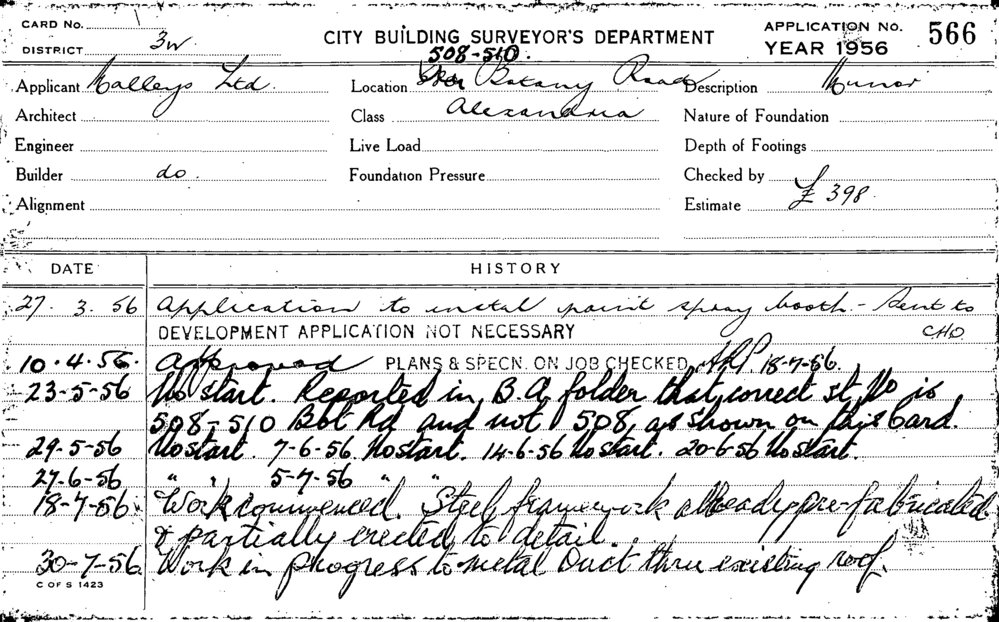 CARD No.
DISTRICT 3W
CITY BUILDING SURVEYOR'S DEPARTMENT
APPLICATION No. 566
YEAR 1956
508-510.
Applicant Malleys Ltd. Location Botany Road Description Minor
Architect Class Alexandria Nature of Foundation
Engineer Live Load Depth of Footings
Builder do. Foundation Pressure Checked by
Alignment Estimate £ 398
DATE HISTORY
27. 3. 56 Application to instal paint spray booth - Sent to
CHO
DEVELOPMENT APPLICATION NOT NECESSARY
10.4.56. Approved PLANS & SPECN. ON JOB CHECKED 18-7-56.
23-5-56 No start. Reported in B.A folder that correct st. No is
508-510 Bot Rd and not 508, as shown on this Card.
29-5-56 No start. 7-6-56. No start. 14-6-56 No start. 20-6-56 No start.
27-6-56 " " 5-7-56 " "
18-7-56. Work commenced. Steel framework already pre-fabricated
& partially erected to detail.
30-7-56. Work in progress to metal Duct thru existing roof.
C OF S 1423